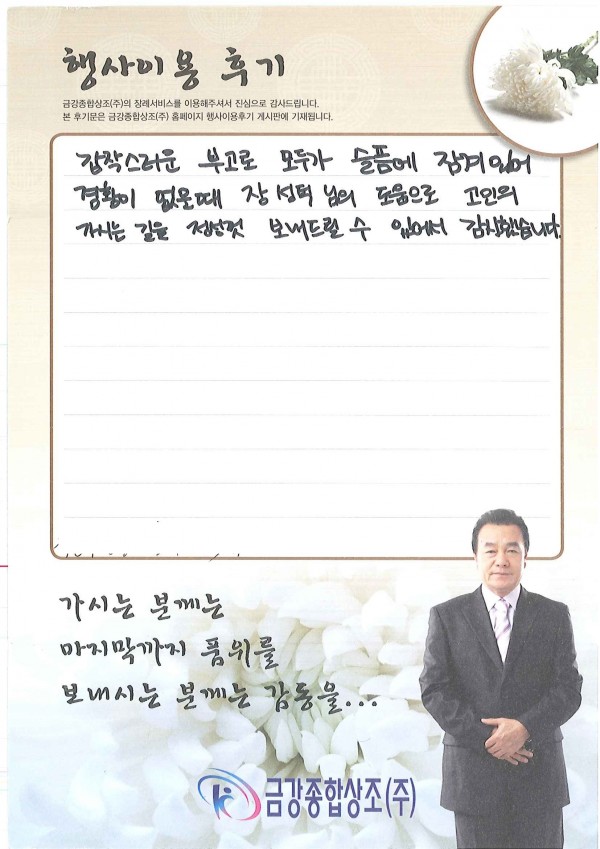 행사이용 후기
금강종합상조(주)의 장례서비스를 이용해주셔서 진심으로 감사드립니다.
본 후기문은 금강종합상조(주) 홈페이지 행사이용후기 게시판에 기재됩니다.
갑작스러운 부고로 모두가 슬픔에 잠겨있어
경황이 없을때 장성턱 님의 도움으로 고인의
가시는 길을 정성껏 보내드릴 수 있어서 감사했습니다.
가시는 분께는
마지막까지 품위를
보내시는 분께는 감동을...
금강종합상조(주)